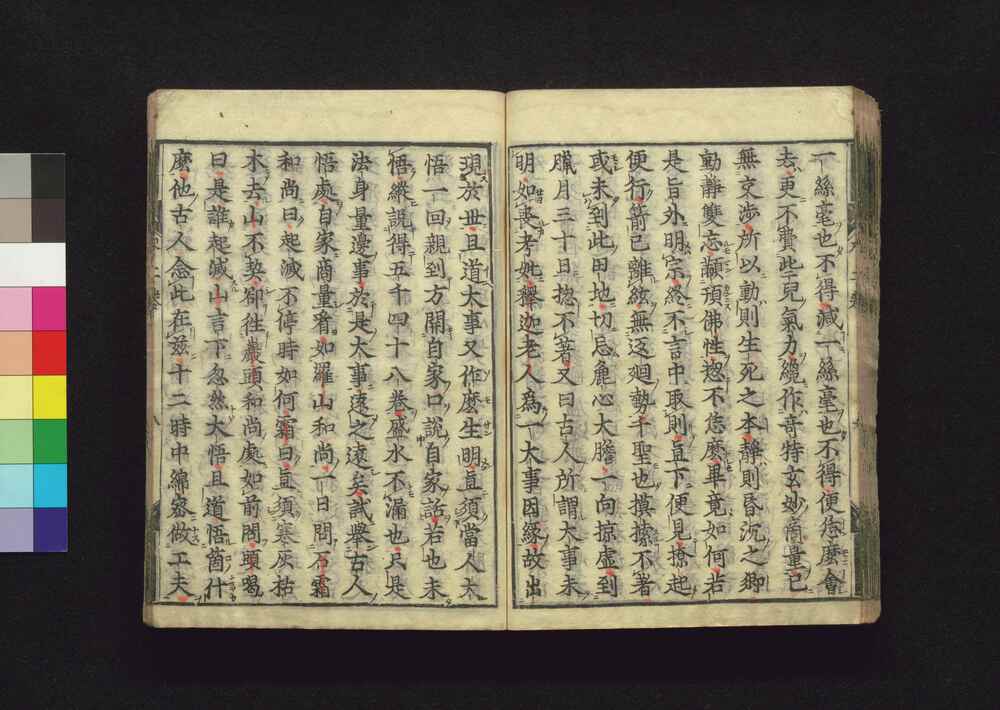 一絲毫也不得減一絲毫也不得便恁麼會
去更不費些兒氣力纔作奇特玄妙商量已
無交渉所以動則生死之本靜則昏沉之鄉
動靜雙忘顢頇佛性揔不恁麼畢竟如何若
是旨外明宗終不言中取則直下便見撩起
便行箭已離絃無返廻勢千聖也摸𢱢不著
或未到此田地切忌麁心大膽一向掠虛到
臘月三十日揔不著又曰古人所謂大事未
明如喪考妣釋迦老人爲一大事因緣故出
現於世且道大事又作麼生明直須當人大
悟一回親到方開自家口說自家話若也未
悟縱說得五千四十八卷盛水不漏也只是
法身量邊事於是大事遠之遠矣試擧古人
悟處自家商量看如羅山和尚一日問石霜
和尚曰起滅不停時如何霜曰直須寒灰枯
木去山不契卻徃巖頭和尚處如前問頭喝
曰是誰起滅山言下忽然大悟且道悟箇什
麼他古人念此在玆十二時中綿密做工夫